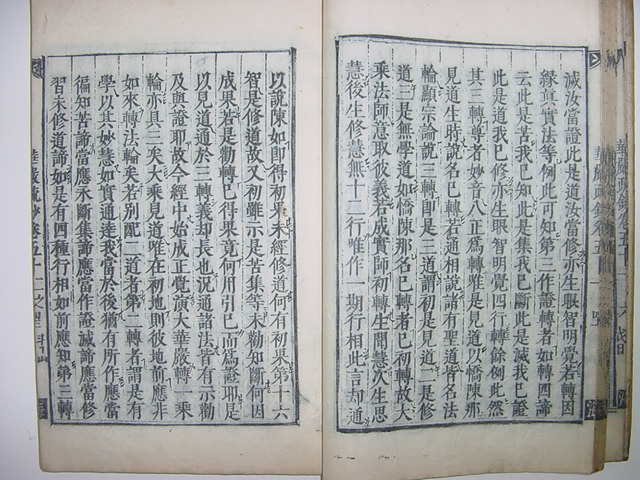 滅汝當證此是道汝當修亦生眼智明覺若轉因
緣真實法等例此可知第三作證轉者如轉四諦
云此是苦我已知此是集我已斷此是滅我已證
此是道我已修亦生眼智明覺四行轉餘例此然
其三轉尊者妙音八正為轉雖是見道以憍陳那
見道生時說名已轉相說諸有聖道皆名法
輪顯宗論說三轉即是三道謂初轉是見道二是修
道三是無學道如憍陳那名已轉者已初轉故大
乘法師意取彼義若成實師初轉生聞慧次生思
慧後生修慧無十二行唯作一期行相此言却道
以說陳如即得初果未經修道何有初果第十六
智是修道故又初雖示是苦集等未勸知斷何因
成果若是勸轉已得果竟何用引已而為證耶是
以見道通於三轉義却長也況通諸法皆有示勸
及與證耶故今經中始成正覺演大華嚴轉一乘
輪亦具三矣大乘見道唯在初地則彼地前應非
如來轉法輪矣若別配三道者第二轉者謂是有
學以其妙慧如實通達我當於後猶有所作應當
徧知苦諦當應永斷集諦應當作證滅諦應當修
習未修道諦如是有四種行相如前應知第三轉
華嚴疏鈔卷五十二之